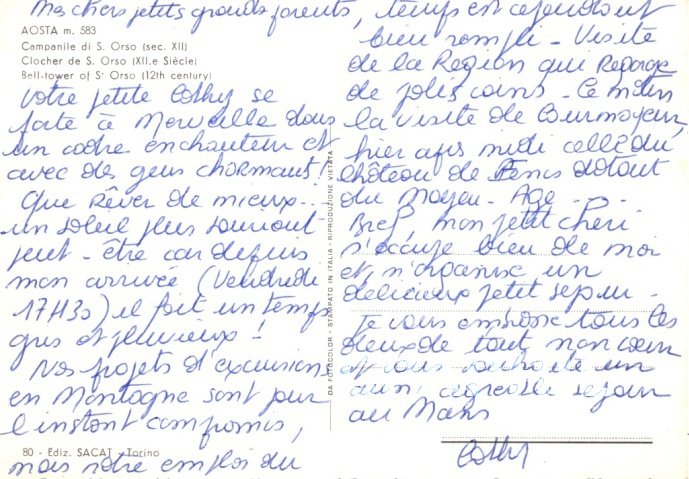 Mes chers petits grands parents,
AOSTA m. 583
Campanile di S. Orso (sec. XII)
Clocher de S. Orso (XII.e Siécle)
Bell-tower of St Orso (12th century)
Votre petite Cathy se
porte à Merveille dans
un cadre enchanteur et
avec des gens charmants !
Que Rêver de mieux...
un soleil plus souriant
peut-être car depuis
mon arrivée (Vendredi
17H30) il fait un temps
gris et pluvieux !
Nos projets d'excursions
en Montagne sont pour
l'instant compromis,
80 - Ediz. SACAT - Torino
mais notre emploi du
DA FOTOCOLOR - STAMPATO IN ITALIA - RIPRODUZIONE VIETATA
temps est cependant
bien rempli - Visite
de la Région qui Regorge
de jolis coins - Ce matin
la visite de Courmayeur,
hier après midi celle du
château de Fenis datant
du Moyen-Age - - -
Bref, mon petit chéri
s'occupe bien de moi
et m'organise un
délicieux petit séjour -
Je vous embrasse tous les
deux de tout mon cœur
et vous souhaite un
aussi agréable séjour
au Mans
Cathy